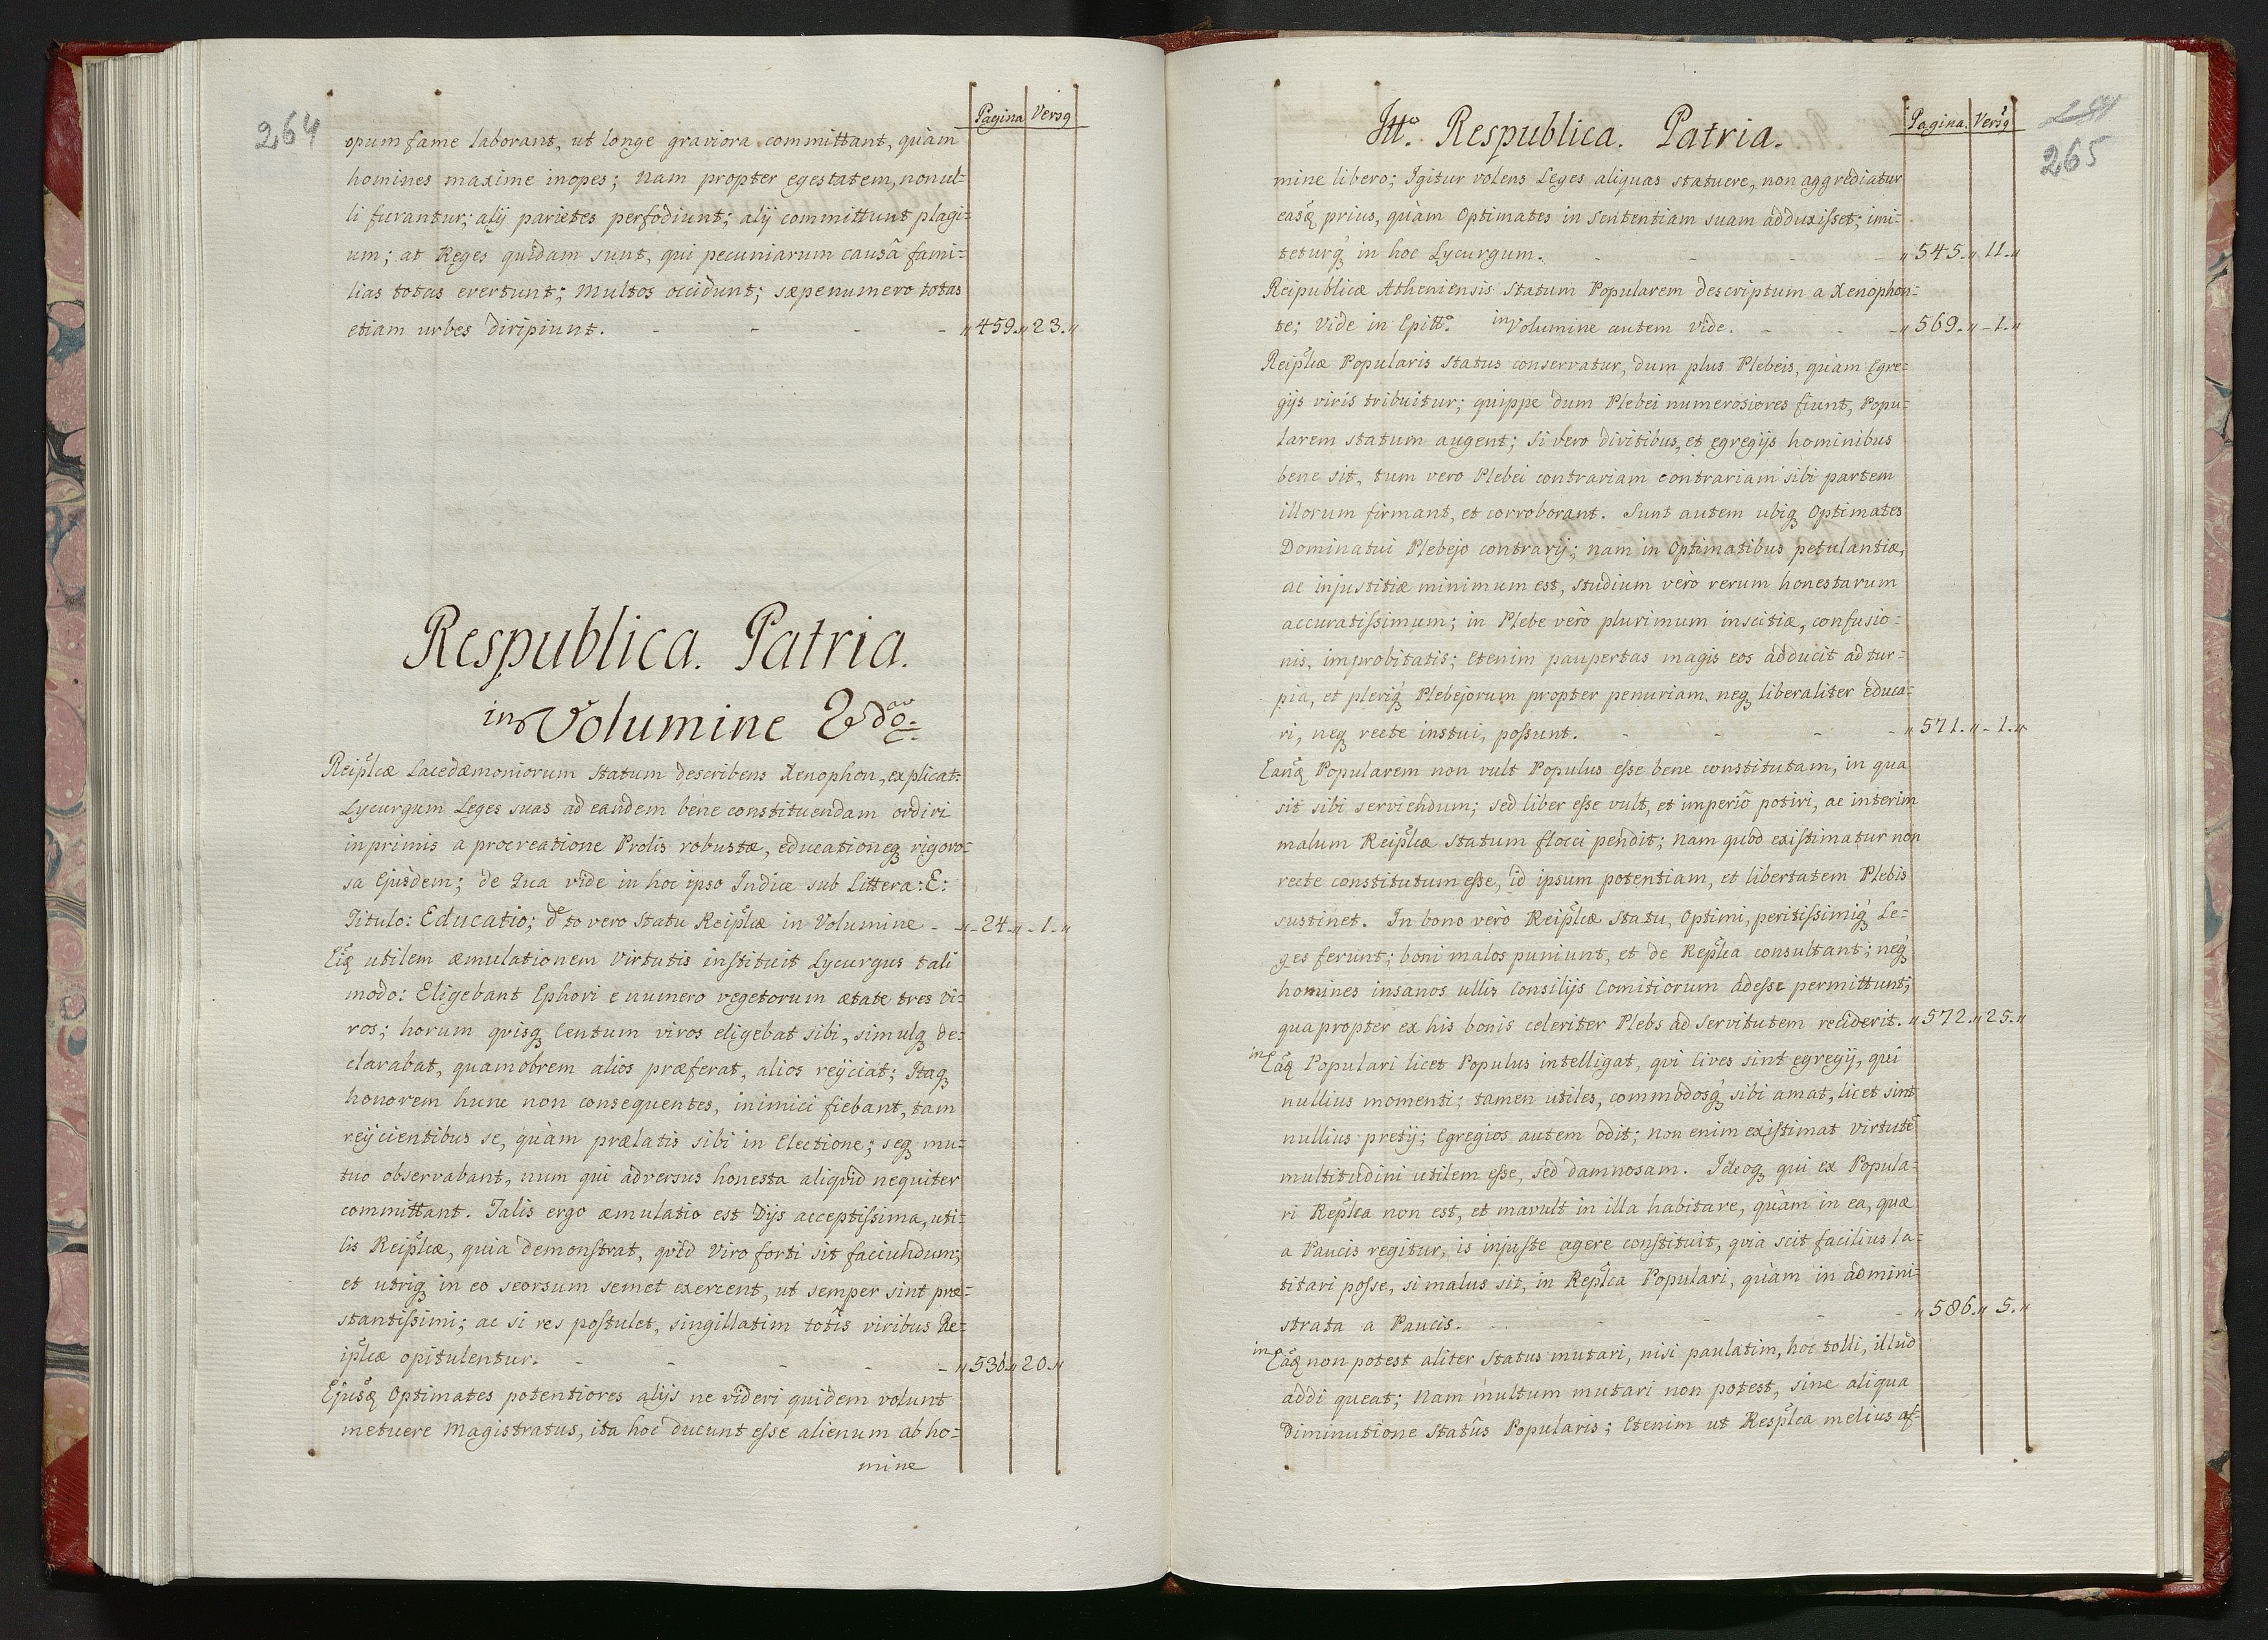 264
Pagina Versq
opum fame laborant, ut longe graviora committant, quàm
homines maxime inopes; Nam propter egestatem, nonul=
li furantur; alij parietes perfodiunt; alij committunt plagi=
um; at Reges quidam sunt, qui pecuniarum causâ fami=
lias totas evertunt; Multos occidunt; sæpenumero totas
etiam urbes diripiunt. - - - - „459.„23.„
Respublica. Patria.
in Volumine 2do.
Reiplcæ Lacedæmoniorum statum describens Xenophon, explicat:
Lycurgum Leges suas ad eandem bene constituendam ordiri
inprimis a procreatione Prolis robustæ, educationeq rigoro=
sa Ejusdem; de Qua vide in hoc ipso Indice sub Littera: E:
Titulo: Educatio; de to vero Statu Reiplcæ in Volumine - „-24.„-1.„
Eiq utilem æmulationem Virtutis instituit Lycurgus tali
modo: Eligebant Ephori e numero vegetorum ætate tres vi=
ros; horum qvisq Centum viros eligebat sibi, simulq de=
clarabat, quamobrem alios præferat, alios reijciat; Itaq
honorem hunc non consequentes, inimici fiebant, tam
reijcientibus se, quàm prælatis sibi in Electione; seq mu=
tuo observabant, num qui adversus honesta aliqvid nequiter
committant. Talis ergo æmulatio est Dijs acceptissima, uti=
lis Reiplcæ, quia demonstrat, qvid Viro forti sit faciendum;
et utriq in eo seorsum semet exercent, ut semper sint præ=
stantissimi; ac si res postulet, singillatim totis viribus Re=
iplcæ opitulentur. - - - - - „536.„20.„
Ejusq Optimates potentiores alijs ne videri quidem volunt
metuere Magistratus, ita hoc ducunt esse alienum ab ho=
mine
Itto. Respublica. Patria.
Pagina. Versq
265
mine libero; Igitur volens Leges aliquas statuere, non aggrediatur
easq prius, quàm Optimates in sententiam suam adduxisset; imi=
teturq in hoc Lycurgum. - - - - „545.„11.„
Reipublicæ Atheniensis Statum Popularem descriptum a Xenophon=
te; Vide in Epitto. in Volumine autem vide. - - - „569.„-1.„
Reiplcæ Popularis Status conservatur, dum plus Plebeis, quàm Egre=
gijs viris tribuitur; quippe dum Plebei numerosiores fiunt, Popu=
larem statum augent; Si vero divitibus, et egregijs hominibus
bene sit, tum vero Plebei contrariam contrariam sibi partem
illorum firmant, et corroborant. Sunt autem ubiq Optimates
Dominatui Plebejo contrarij; nam in Optimatibus petulantiæ,
ac injustitiæ minimum est, studium verò rerum honestarum
accuratissimum; in Plebe verò plurimum inscitiæ, confusio=
nis, improbitatis; Etenim paupertas magis eos adducit ad tur=
pia, et pleriq Plebejorum propter penuriam neq liberaliter educa=
ri, neq recte instui, possunt. - - - - „571.„-1.„
Eanq Popularem non vult Populus esse bene constitutam, in qua
sit sibi serviendum; sed liber esse vult, et imperiò potiri, ac interim
malum Reiplcæ Statum flocci pendit; Nam quòd existimatur non
recte constitutum esse, id ipsum potentiam, et libertatem Plebis
sustinet. In bono verò Reiplcæ Statu, Optimi, peritissimiq Le=
ges ferunt; boni malos puniunt, et de Replca consultant; neq
homines insanos ullis Consilijs Comitiorum adesse permittunt;
quapropter ex his bonis celeriter Plebs ad Servitutem reciderit. „572.„25.„
in Eâq Populari licet Populus intelligat, qvi Cives sint egregij, qui
nullius momenti; tamen utiles, commodosq sibi amat, licet sint
nullius pretij; Egregios autem odit; non enim existimat virtutẽ
multitudini utilem esse, sed damnosam. Ideoq qui ex Popula=
ri Replca non est, et mavult in illa habitare, quàm in ea, quæ
a Paucis regitur, is injuste agere constituit, qvia scit facilius la=
titari posse, si malus sit, in Replca Populari, quàm in admini=
strata a Paucis. - - - - „586.„5.„
in Eâq non potest aliter Status mutari, nisi paulatim, hoc tolli, illud
addi queat; Nam multum mutari non potest, sine aliqua
Diminutione Statûs Popularis; Etenim ut Resplca melius af=